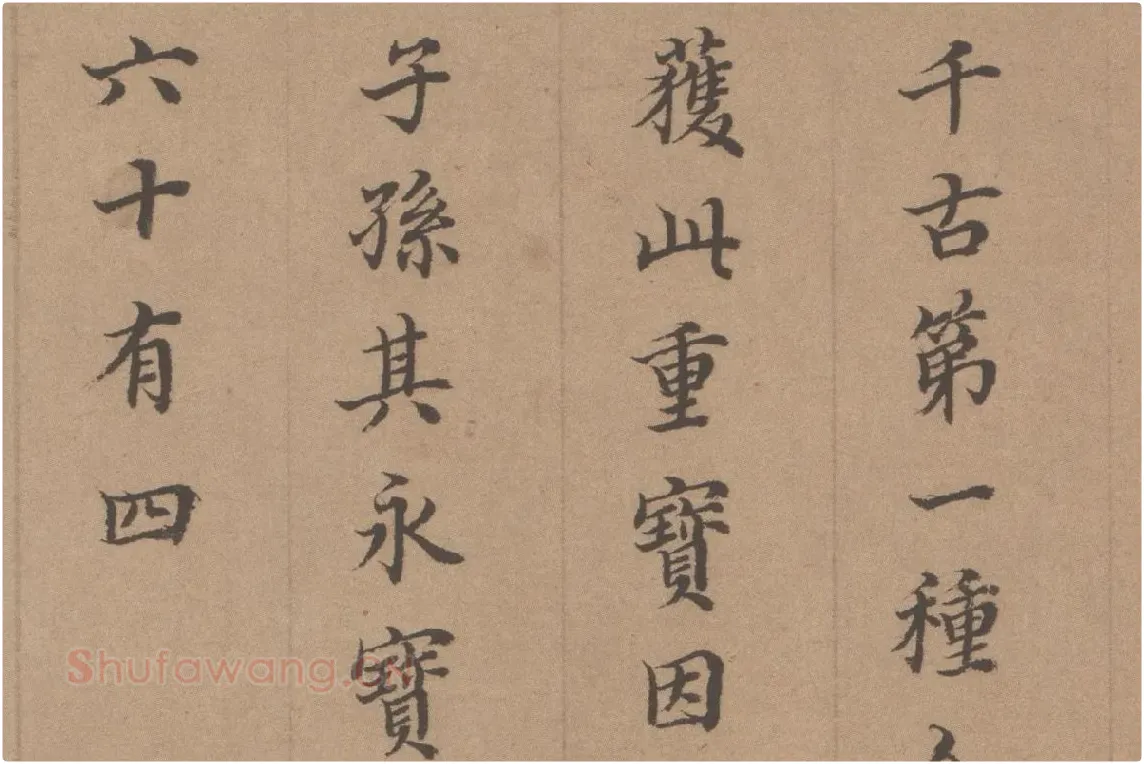 千古第一種
獲此重寶因
子孫其永寶
六十有四
Shufawang.cn